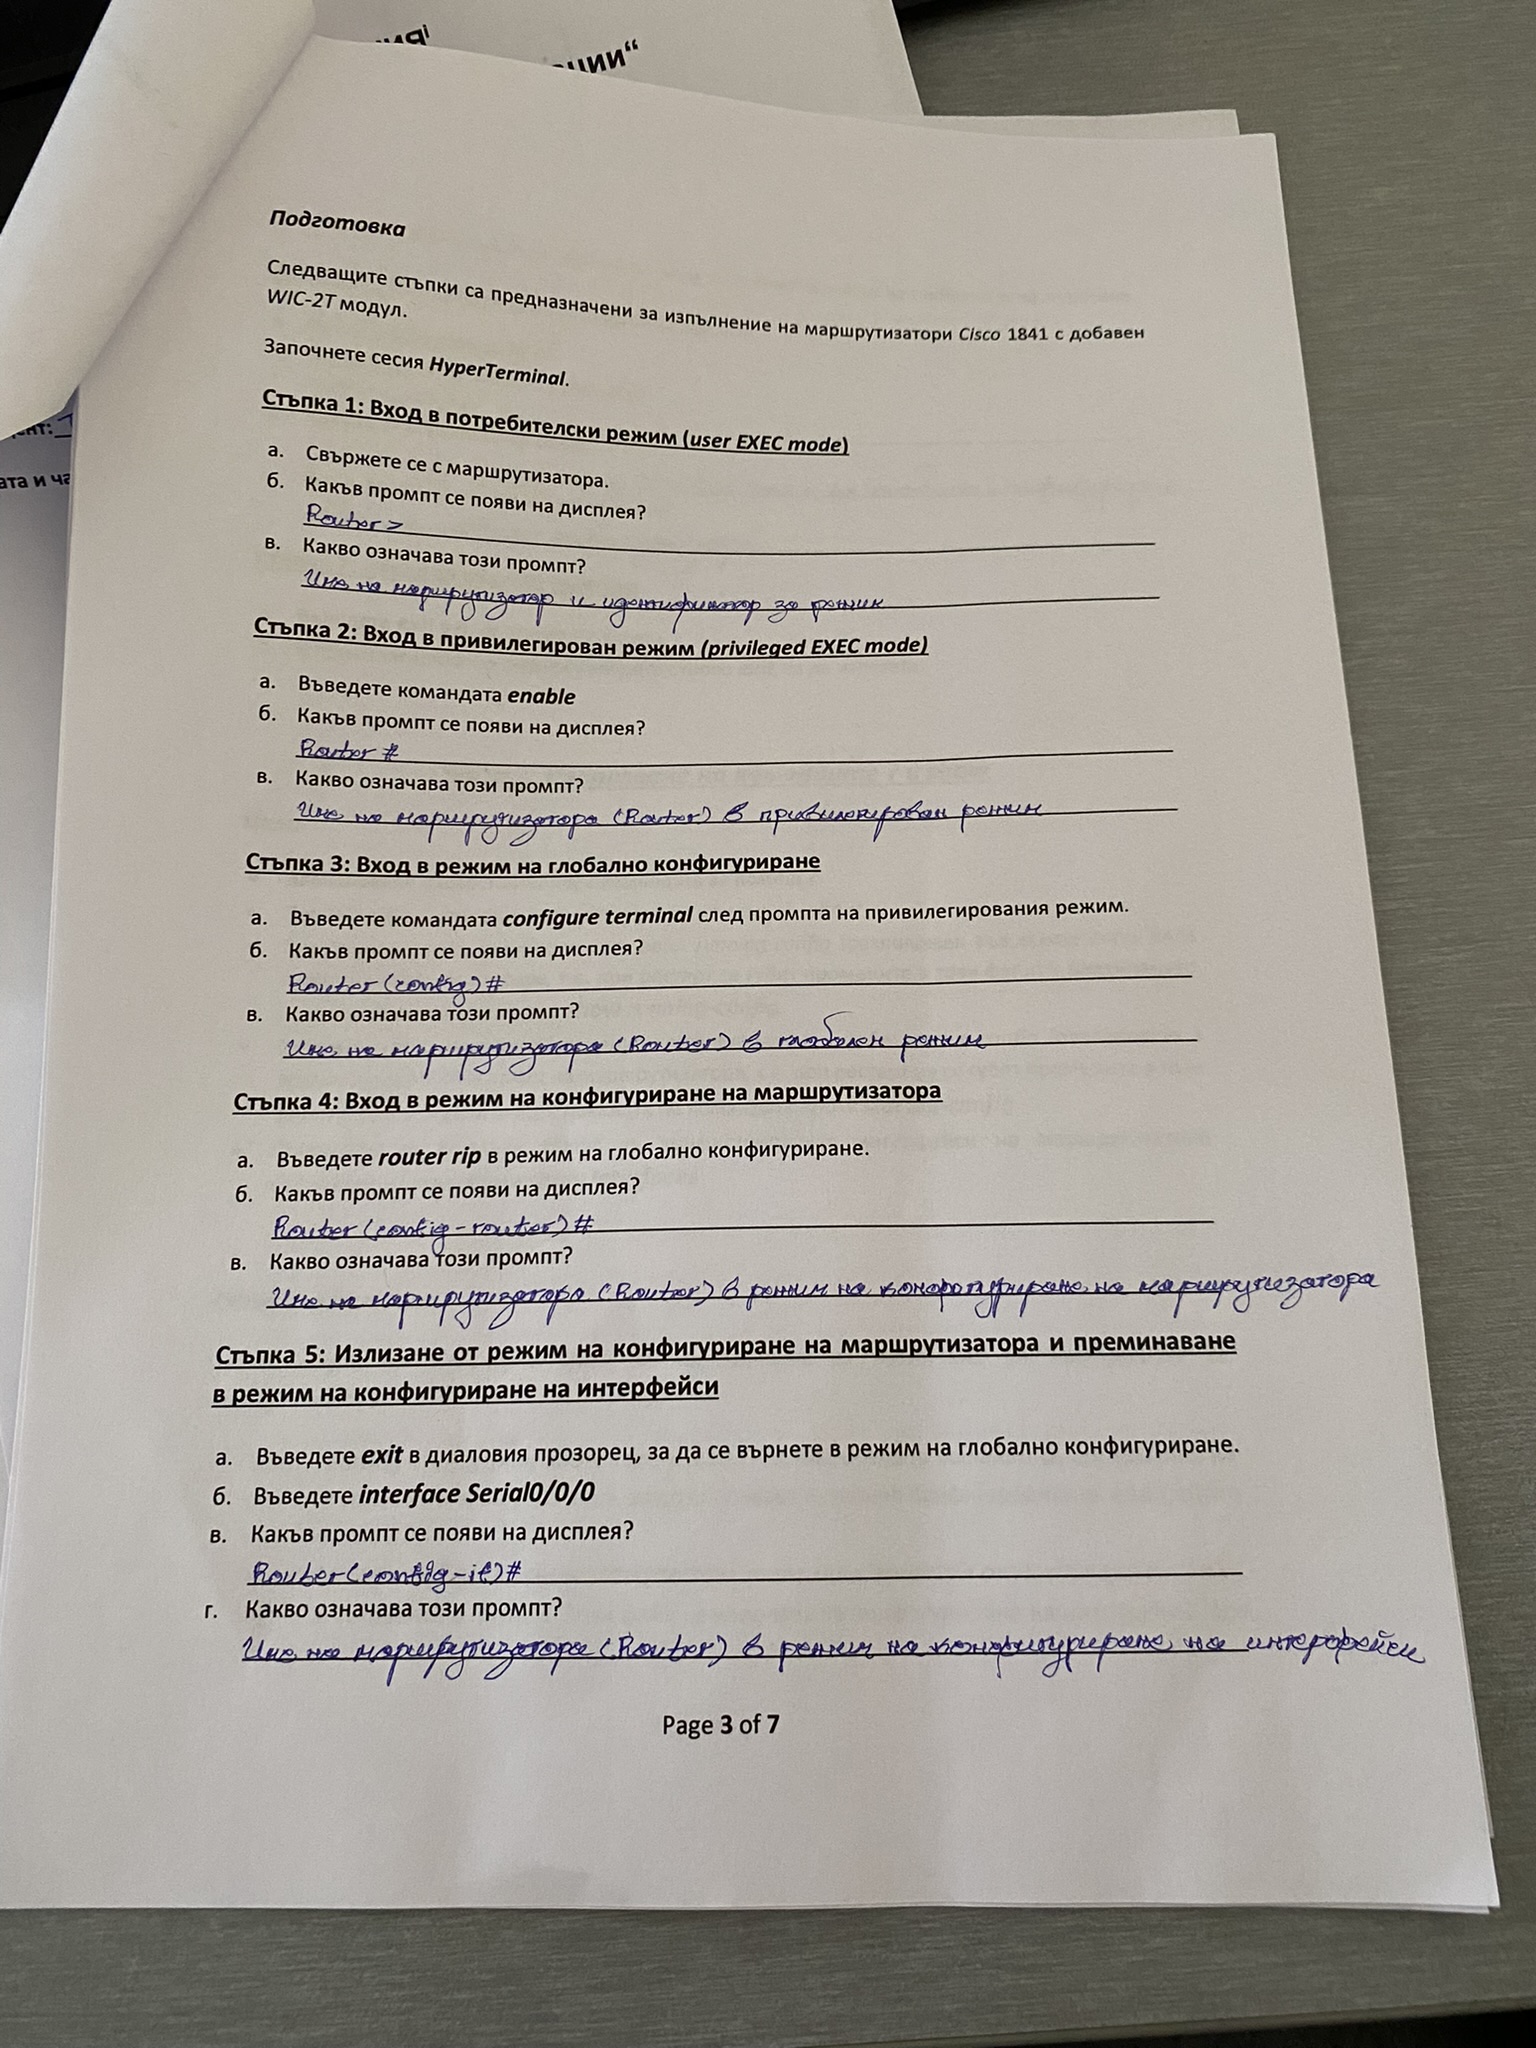 ции“
Подготовка
Следващите стъпки са предназначени за изпълнение на маршрутизатори Cisco 1841 с добавен
WIC-2T модул.
Започнете сесия HyperTerminal.
Стъпка 1: Вход в потребителски режим (user EXEC mode)
а. Свържете се с маршрутизатора.
б. Какъв промпт се появи на дисплея?
Router >
в. Какво означава този промпт?
Име на маршрутизатор и идентификатор за режим
Стъпка 2: Вход в привилегирован режим (privileged EXEC mode)
а. Въведете командата enable
б. Какъв промпт се появи на дисплея?
Router #
в. Какво означава този промпт?
Име на маршрутизатора (Router) в привилегирован режим
Стъпка 3: Вход в режим на глобално конфигуриране
а. Въведете командата configure terminal след промпта на привилегирования режим.
б. Какъв промпт се появи на дисплея?
Router (config) #
в. Какво означава този промпт?
Име на маршрутизатора (Router) в глобален режим
Стъпка 4: Вход в режим на конфигуриране на маршрутизатора
а. Въведете router rip в режим на глобално конфигуриране.
б. Какъв промпт се появи на дисплея?
Router (config-router) #
в. Какво означава този промпт?
Име на маршрутизатора (Router) в режим на конфигуриране на маршрутизатора
Стъпка 5: Излизане от режим на конфигуриране на маршрутизатора и преминаване
в режим на конфигуриране на интерфейси
а. Въведете exit в диаловия прозорец, за да се върнете в режим на глобално конфигуриране.
б. Въведете interface Serial0/0/0
в. Какъв промпт се появи на дисплея?
Router (config-if) #
г. Какво означава този промпт?
Име на маршрутизатора (Router) в режим на конфигуриране на интерфейси
Page 3 of 7